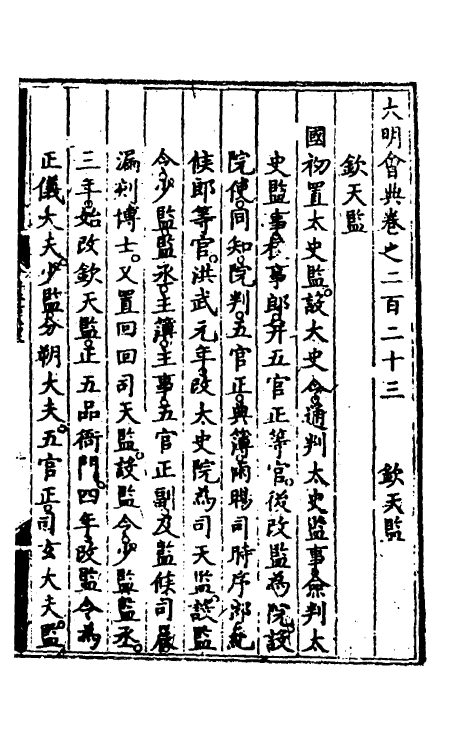 大明會典卷之二百二十三　欽天監
欽天監
國初置太史監。設太史令。通判太史監事。僉判太
史監事。校事郎。并五官正等官。後改監為院。設
院使。同知。院判。五官正。典簿。雨暘司時序郎。紀
候郎等官。洪武元年。改太史院為司天監。設監
令。少監。監丞。主簿。主事。五官正副。及監候司晨
漏刻博士。又置回回司天監。設監令。少監。監丞。
三年。始改欽天監。正五品衙門。四年。改監令為
正儀大夫。少監分朔大夫。五官正司玄大夫。監